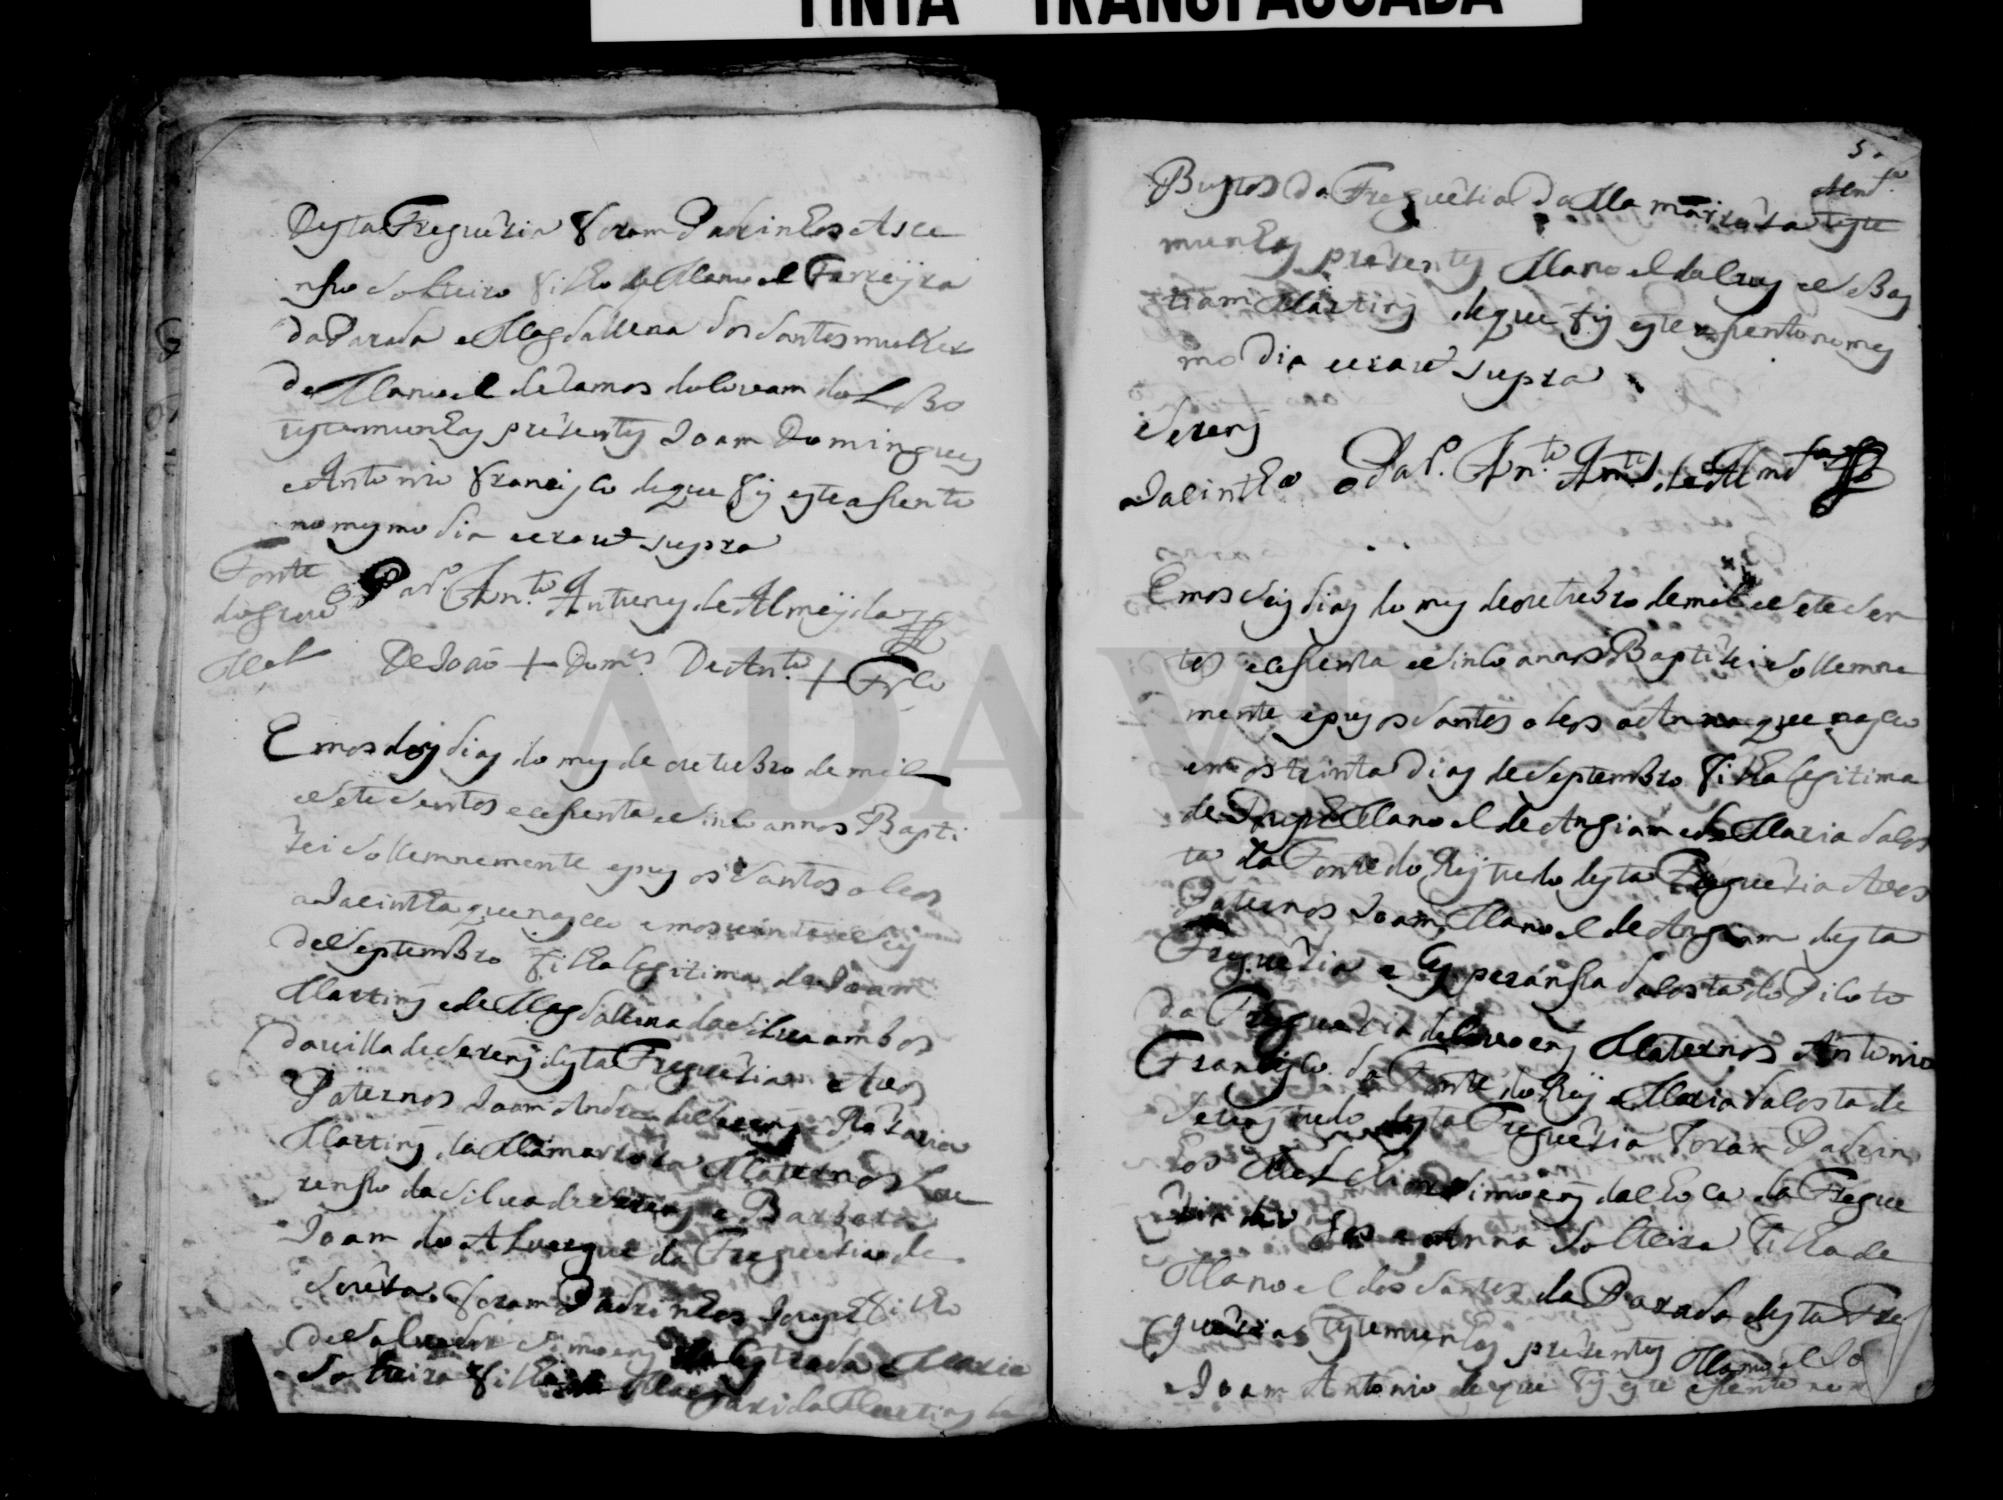 TINTA TRANSPASSADA
desta Freguezia foram Padrinhos Asce
nsso solteiro filho de Manoel Ferreyra
da Parada e Magdallena dos santos mulher
de Manoel de Ramos do Covam do Lobo
testemunhas prezentes Joam Domingues
e Antonio Francisco de que fis este assento
no mesmo dia e era ut supra
Fonte
do grou
O Par.º An.to Antunes de Almeyda
Mel
De João + Dom.es De Ant.º + Fr.co
Em os dois dias do mes de outubro de mil
e sete sentos e sessenta e sinco annos Bapti
zei sollemnemente e pus os santos oleos
a Jacintha que nasceo em os vinte e seis
de Septembro filha legitima de Joam
Martins e de Magdallena da Silva ambos
da villa de Serem desta Freguezia Avos
Paternos Joam Andre de Serem e Maria
Martins da Mamarroza Maternos Lou
renso da Silva de Serem e Barbara
Joam do Alvergue da Freguezia de
Soreza foram Padrinhos Joseph filho
de Salvador Simoens da Estrada e Maria
solteira filha de Margarida Martins de
5
Bustos da Freguezia da Mamarroza teste
Almd.ª
munhas prezentes Manoel da Cruz e Sebas
tiam Martins de que fis este assento no mes
mo dia e era ut supra
Serem
Jacintha
O Par.º An.to Ant.es de Almd.ª
Em os seis dias do mes de outubro de mil e sete sen
tos e sessenta e sinco annos Baptizei sollemne
mente e pus os santos oleos a Anna que nasceo
em os trinta dias de Septembro filha legitima
de Joseph Manoel de Angiam e de Maria da Cos
ta da Fonte do Rey tudo desta Freguezia Avos
Paternos Joam Manoel de Angiam desta
Freguezia e Esperánssa da Costa do Piloto
da Freguezia de Covoens Maternos Antonio
Francisco da Fonte do Rey e Maria da Costa de
Serem tudo desta Freguezia foram Padrin
hos Simoens da Choca da Fregue
zia de e Anna solteira filha de
Manoel dos santos da Parada desta Fre
guezia testemunhas prezentes Manoel
Joam Antonio de que fis este assento no